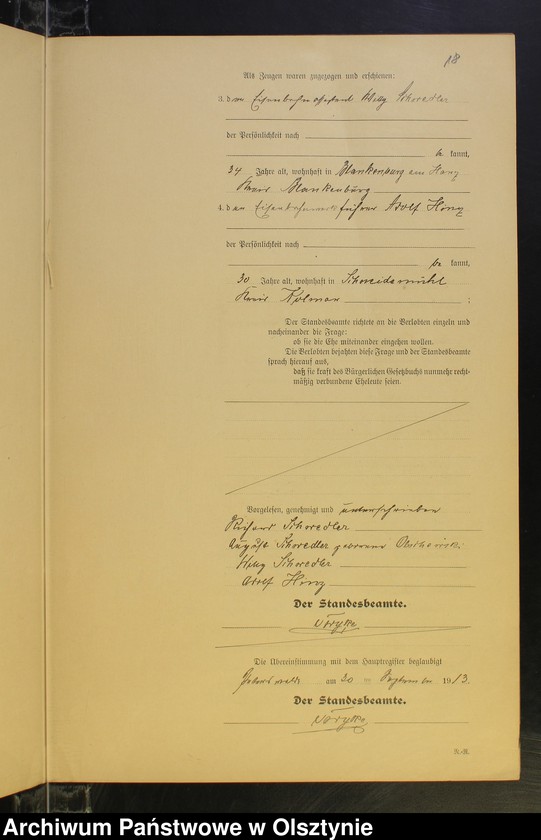 18
Als Zeugen waren zugezogen und erschienen:
3. d er Eisenbahnassistent Willy Schoredler
der Persönlichkeit nach
be kannt,
34 Jahre alt, wohnhaft in Blankenburg am Harz
Kreis Blankenburg
4. d er Adolf Hinz
der Persönlichkeit nach
be kannt,
30 Jahre alt, wohnhaft in Schneidemühl
Kreis Kolmar ;
Der Standesbeamte richtete an die Verlobten einzeln und
nacheinander die Frage:
ob sie die Ehe miteinander eingehen wollen.
Die Verlobten bejahten diese Frage und der Standesbeamte
sprach hierauf aus,
daß sie kraft des Bürgerlichen Gesetzbuchs nunmehr recht-
mäßig verbundene Eheleute seien.
Vorgelesen, genehmigt und unterschrieben
Richard Schoredler
Auguste Schoredler geborene
Willy Schoredler
Adolf Hinz
Der Standesbeamte.
Die Übereinstimmung mit dem Hauptregister beglaubigt
am 30 ten September 1913
Der Standesbeamte.
Archiwum Państwowe w Olsztynie